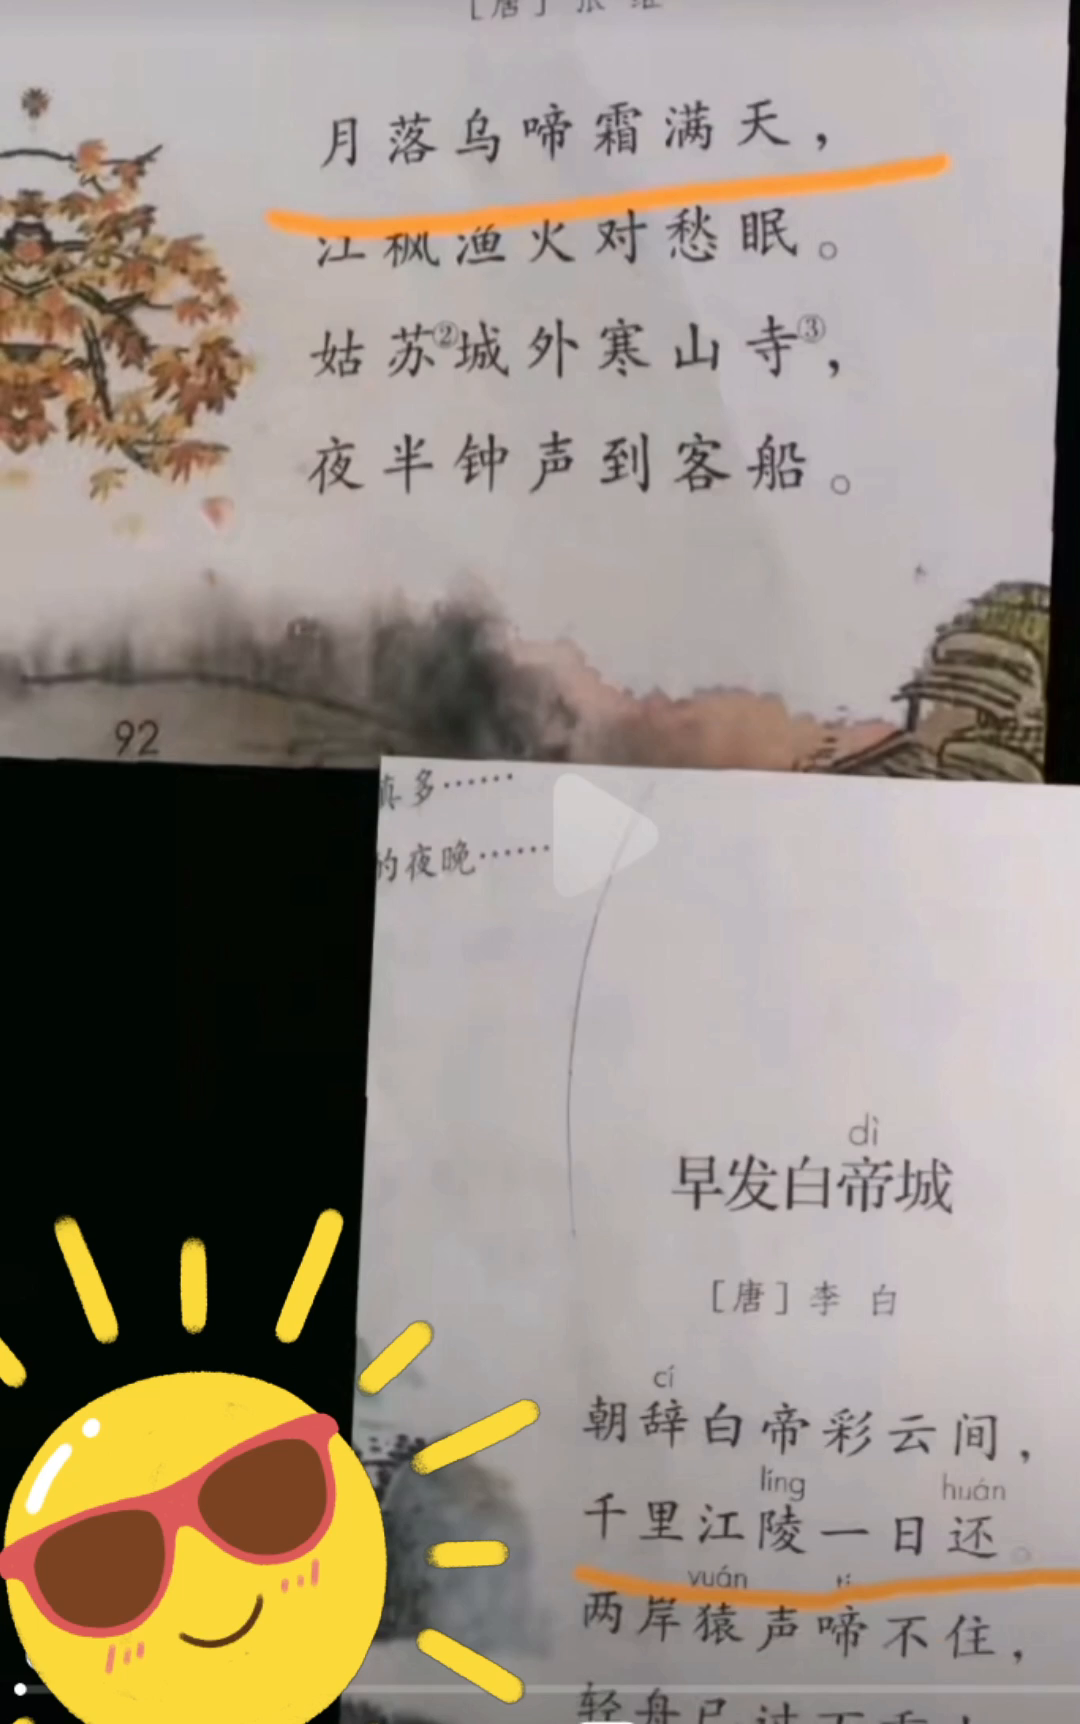 [唐] 张 继
月落乌啼霜满天，
江枫渔火对愁眠。
姑苏②城外寒山寺③，
夜半钟声到客船。
92
真多……
的夜晚……
dì
早发白帝城
[唐] 李 白
cí
朝辞白帝彩云间，
líng huán
千里江陵一日还。
yuán tí
两岸猿声啼不住，
轻舟已过万重山